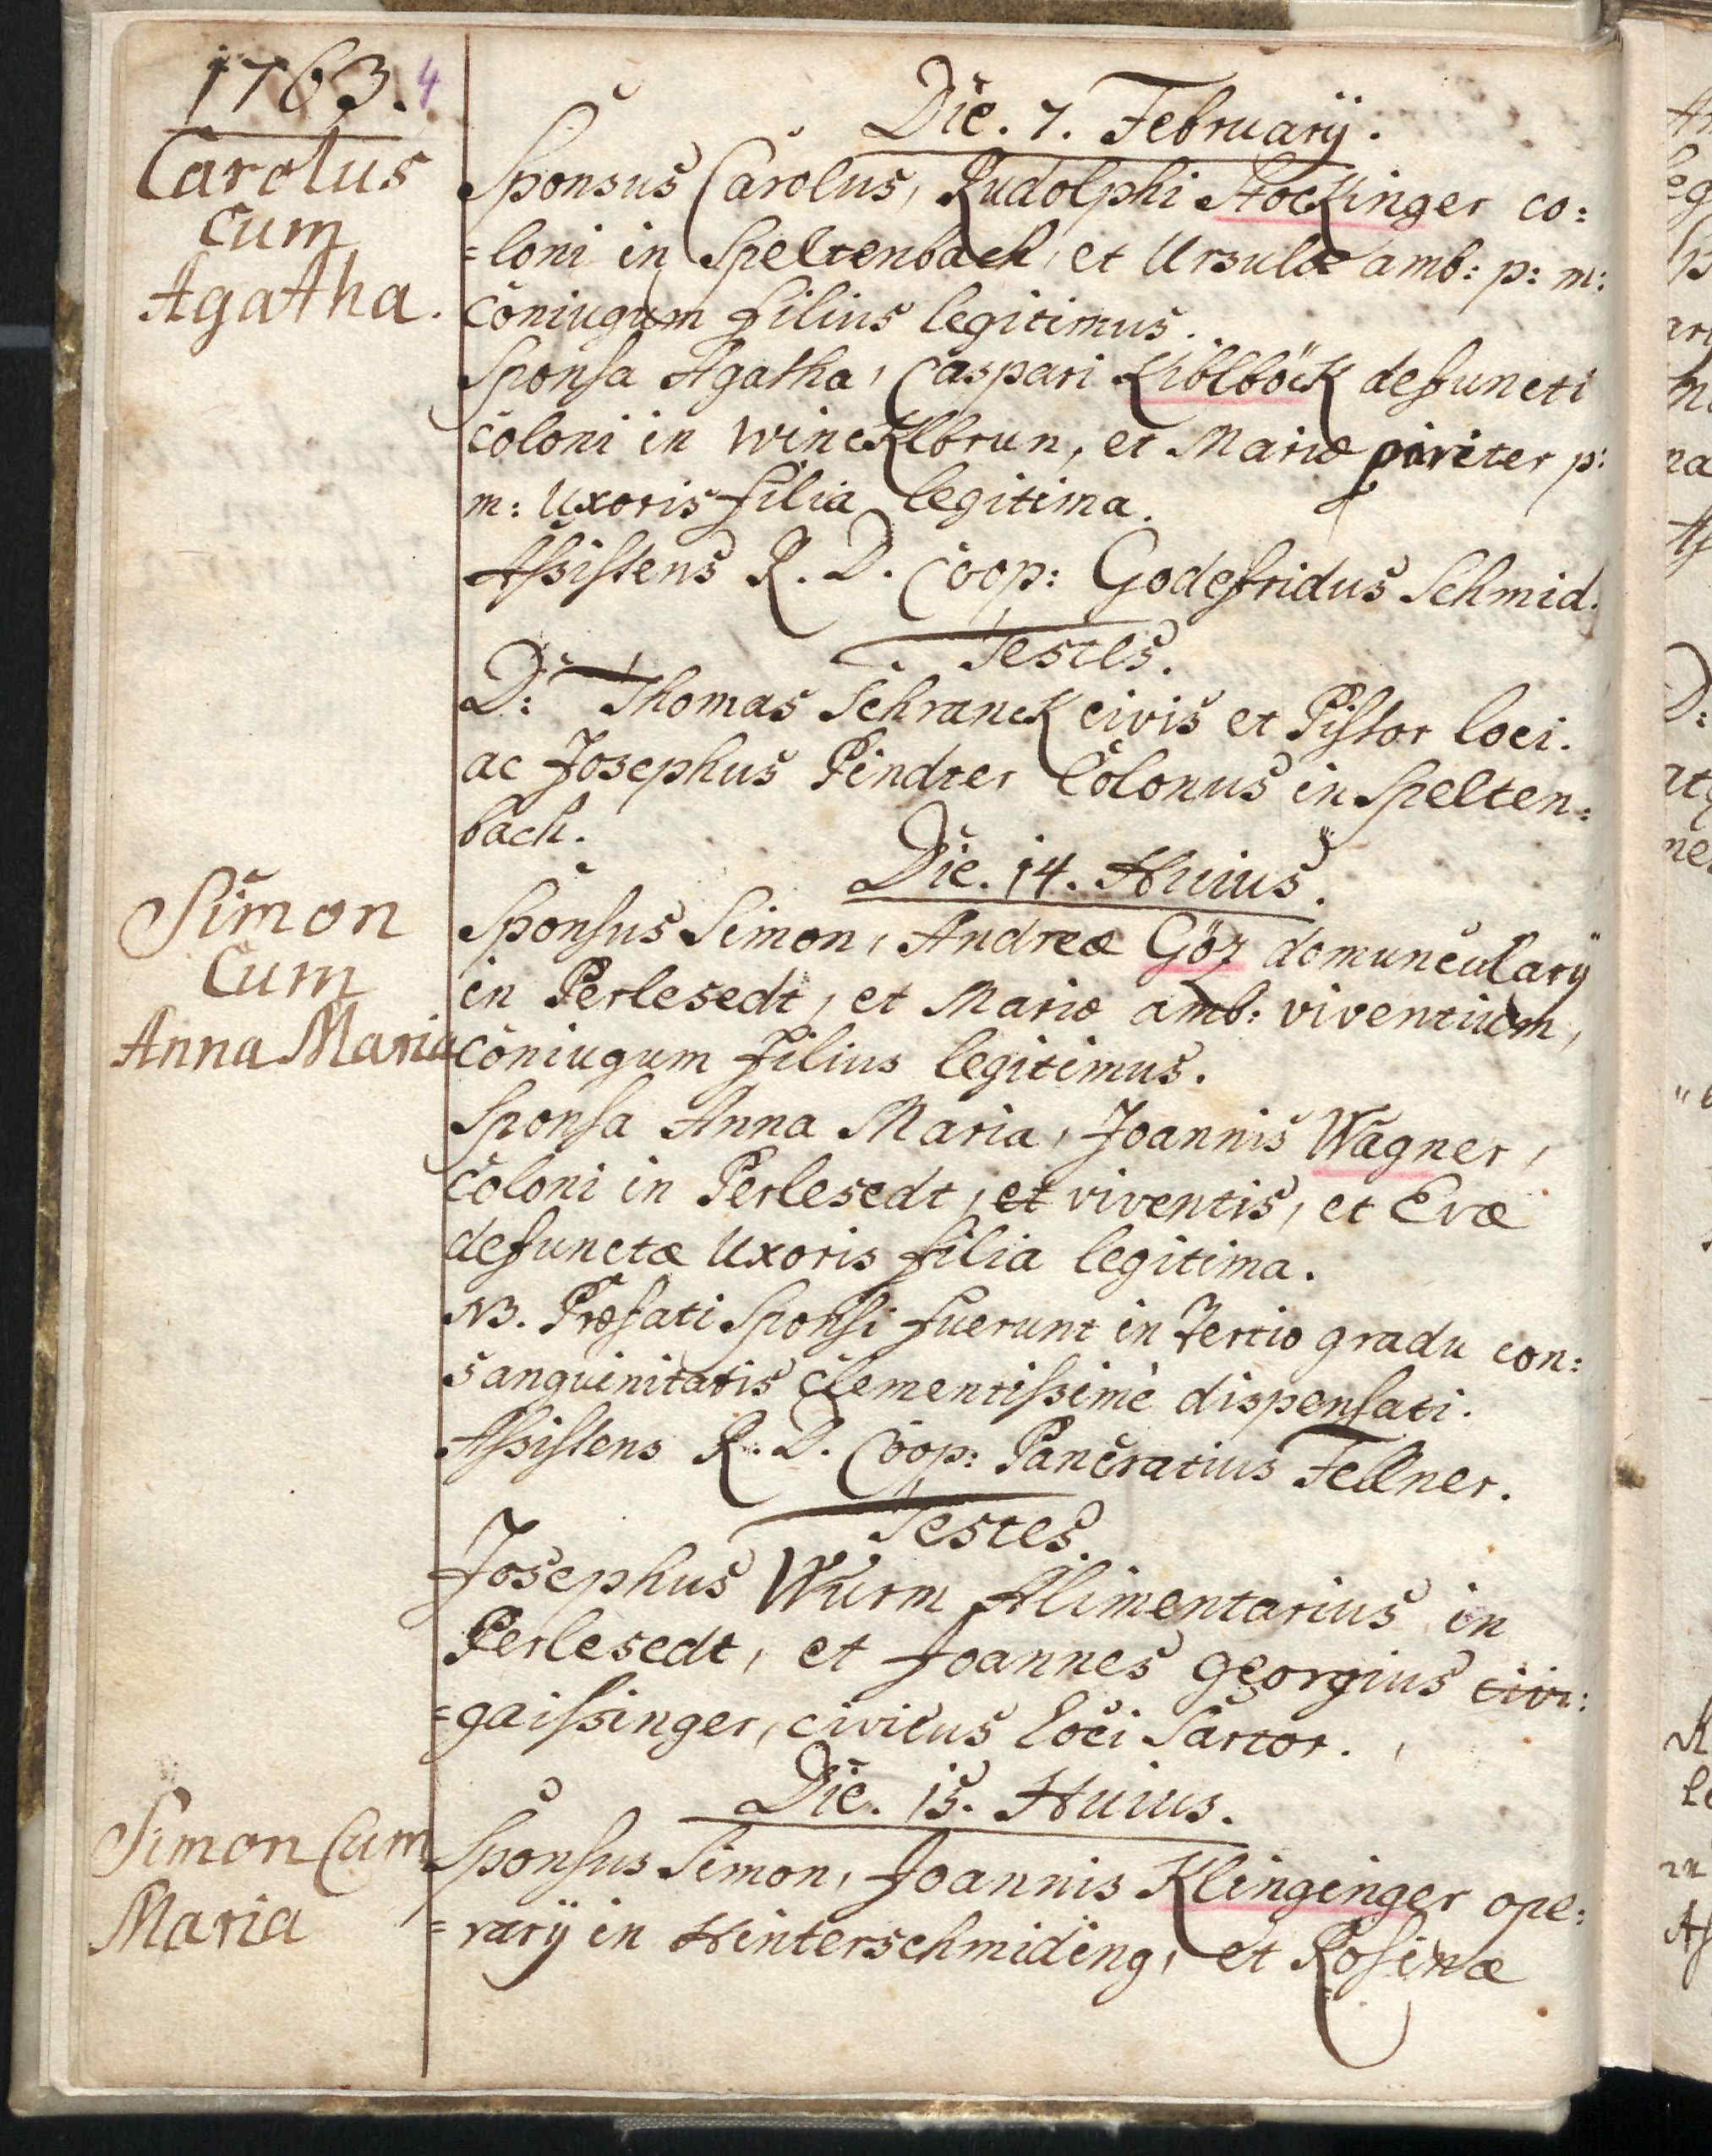 1763. 4
Carolus
cum
Agatha.
Die. 7. Februarÿ.
Sponsus Carolus, Rudolphi Stockinger co:
=loni in Speltenbach, et Ursulæ amb: p: m:
coniugum filius legitimus.
Sponsa Agatha, Caspari Kiblböck defuncti
coloni in Wincklbrun, et Mariæ pariter p:
m: Uxoris filia legitima.
Assistens R. D. Coop: Godefridus Schmid.
Testes.
D: Thomas Schranck civis et Pistor loci.
ac Josephus Pindter Colonus in Spelten:
bach.
Simon
Cum
Anna Maria
Die. 14. Huius.
Sponsus Simon, Andreæ Göz domuncularÿ
in Perlesedt, et Mariæ amb: viventium,
coniugum filius legitimus.
Sponsa Anna Maria, Joannis Wagner,
coloni in Perlesedt, et viventis, et Evæ
defunctæ Uxoris filia legitima.
NB. Præfati Sponsi fuerunt in Tertio gradu con:
sanguinitatis clementissimè dispensati.
Assistens R. D. Coop: Pancratius Fellner.
Testes
Josephus Wurm Alimentarius in
Perlesedt, et Joannes georgius civi:
=gaissinger, civicus loci Sartor.
Simon Cum
Maria
Die. 15. Huius.
Sponsus Simon, Joannis Klinginger ope:
=rarÿ in Hinterschmiding, et Rosinæ